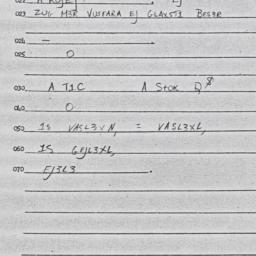 023 ZUG M3R VUSFARA EJ GLAXST3 BES3R
024 —
025 O
030 A T1C A STOK Q $
040 O
050 1S VASL3VN, = VASL3XL,
060 1S GEJL3XL,
070 EJ3L3 .